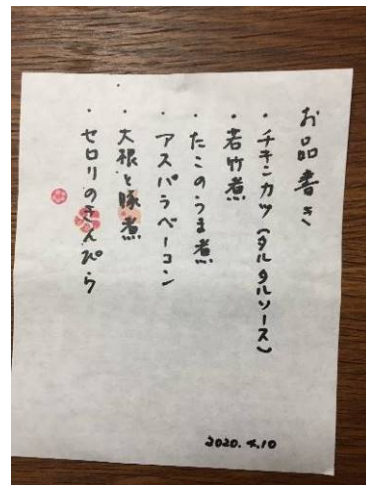 お品書き
・チキンカツ(タルタルソース)
・若竹煮
・たこのうま煮
・アスパラベーコン
・大根と豚煮
・セロリのきんぴら
2020.4.10